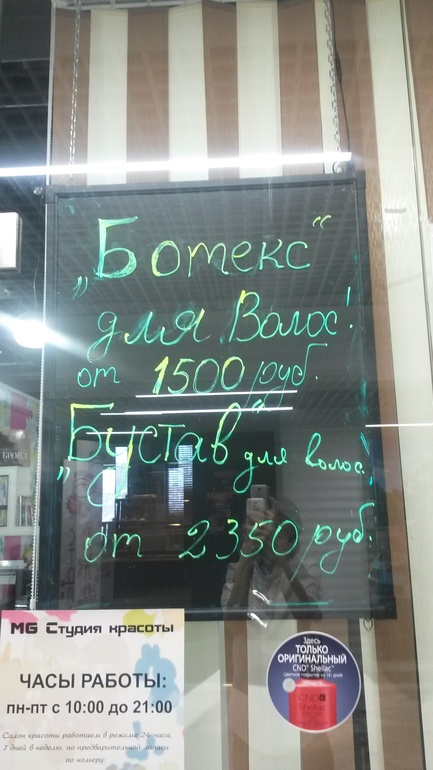 „Ботекс“
для Волос!
от 1500 руб.
„Бустав“ для волос
от 2350 руб.
MG Студия красоты
ЧАСЫ РАБОТЫ:
пн-пт с 10:00 до 21:00
Салон красоты работаем в режиме 24 часа,
7 дней в неделю, по предварительной записи
по номеру:
Здесь
ТОЛЬКО
ОРИГИНАЛЬНЫЙ
CND® Shellac™
CND
Shellac